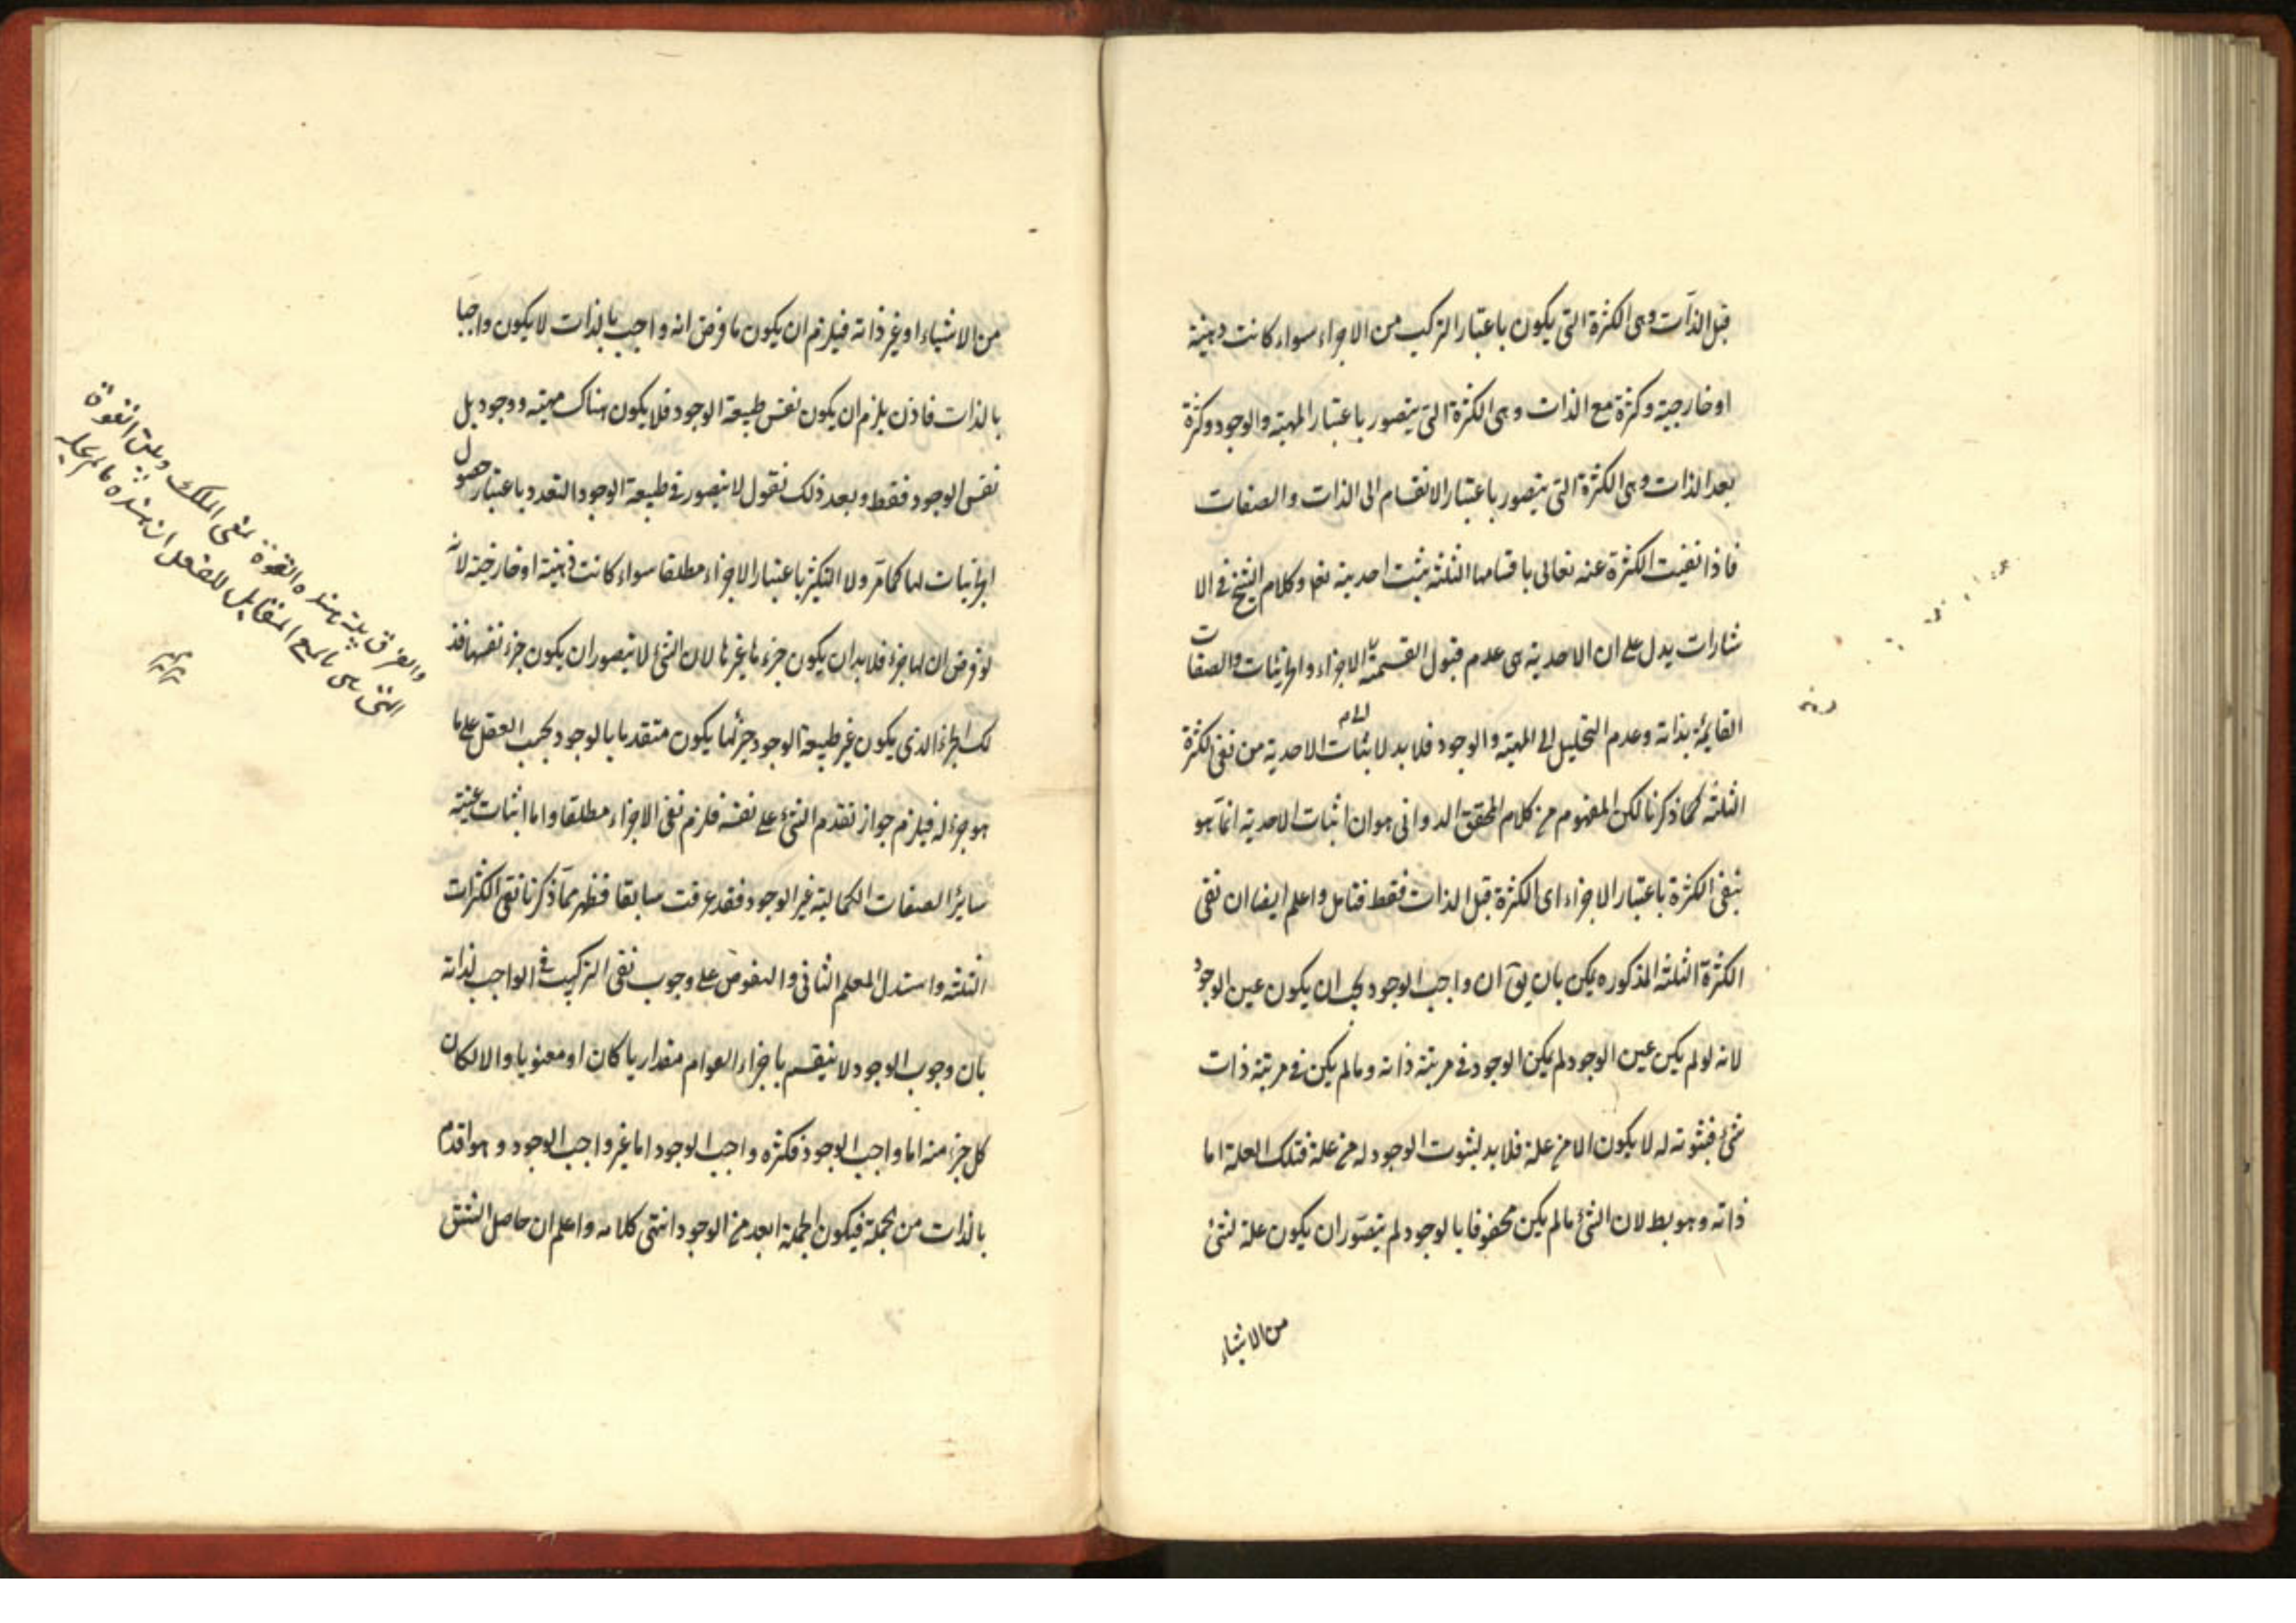 قبل الذات وهى الكثرة التى يكون باعتبار التركيب من الاجزاء سواء كانت ذهنية
او خارجية وكثرة مع الذات وهى الكثرة التى يتصور باعتبار المهية والوجود وكثرة
بعد الذات وهى الكثرة التى يتصور باعتبار الانقسام الى الذات والصفات
فاذا نفيت الكثرة عنه تعالى باقسامها الثلثة يثبت احديته تعا وكلام الشيخ فى الا
شارات يدل على ان الاحدية هى عدم قبول القسمة الاجزاء والجزئيات والصفات
القايمة بذاته وعدم التحليل الى المهية والوجود فلا بد لاثبات الاحدية من نفى الكثرة
الثلثة كما ذكرنا لكن المفهوم من كلام المحقق الدوانى هو ان اثبات الاحدية انما هو
بنفى الكثرة باعتبار الاجزاء اى الكثرة قبل الذات فقط فتامل واعلم ايضا ان نفى
الكثرة الثلثة المذكوره يمكن بان يق ان واجب الوجود يجب ان يكون عين الوجود
لانه لو لم يكن عين الوجود لم يكن الوجود فى مرتبة ذاته وما لم يكن فى مرتبة ذات
شئ فثبوته له لا يكون الا من علة فلا بد لثبوت الوجود له من علة فتلك العلة اما
ذاته وهو بط لان الشئ ما لم يكن محفوفا بالوجود لم يتصور ان يكون علة لشئ
من الاشياء
من الاشياء او غير ذاته فيلزم ان يكون ما فرض انه واجب بالذات لا يكون واجبا
بالذات فاذن يلزم ان يكون نفس طبيعة الوجود فلا يكون هناك مهية ووجود بل
نفس الوجود فقط وبعد ذلك نقول لا يتصور فى طبيعة الوجود التعدد باعتبار حصول
الجزئيات لها كما مر ولا التكثر باعتبار الاجزاء مطلقا سواء كانت ذهنية او خارجية لانه
لو فرض ان لها جزء فلا بد ان يكون جزءها غيرها لان الشئ لا يتصور ان يكون جزء نفسها فذ
لك الجزء الذى يكون غير طبيعة الوجود جزئها يكون متقدما بالوجود بحسب العقل على ما
هو جزء له فيلزم جواز تقدم الشئ على نفسه فلزم نفى الاجزاء مطلقا واما اثبات عينية
سايرا لصفات الكمالية غير الوجود فقد عرفت سابقا فظهر مما ذكرنا نفى الكثرات
الثلثة واستدل المعلم الثانى والفصوص على وجوب نفى التركيب فى الواجب لذاته
بان وجوب الوجود لا ينقسم باجزاء القوام مقداريا كان او معنويا والا لكان
كل جزء منه اما واجب الوجود فكثره واجب الوجود اما غير واجب الوجود وهو اقدم
بالذات من الجملة فيكون الجملة ابعد من الوجود انتهى كلامه واعلم ان حاصل الشق